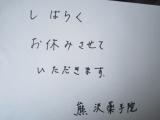 しばらく
お休みさせて
いただきます。
熊沢薬子院